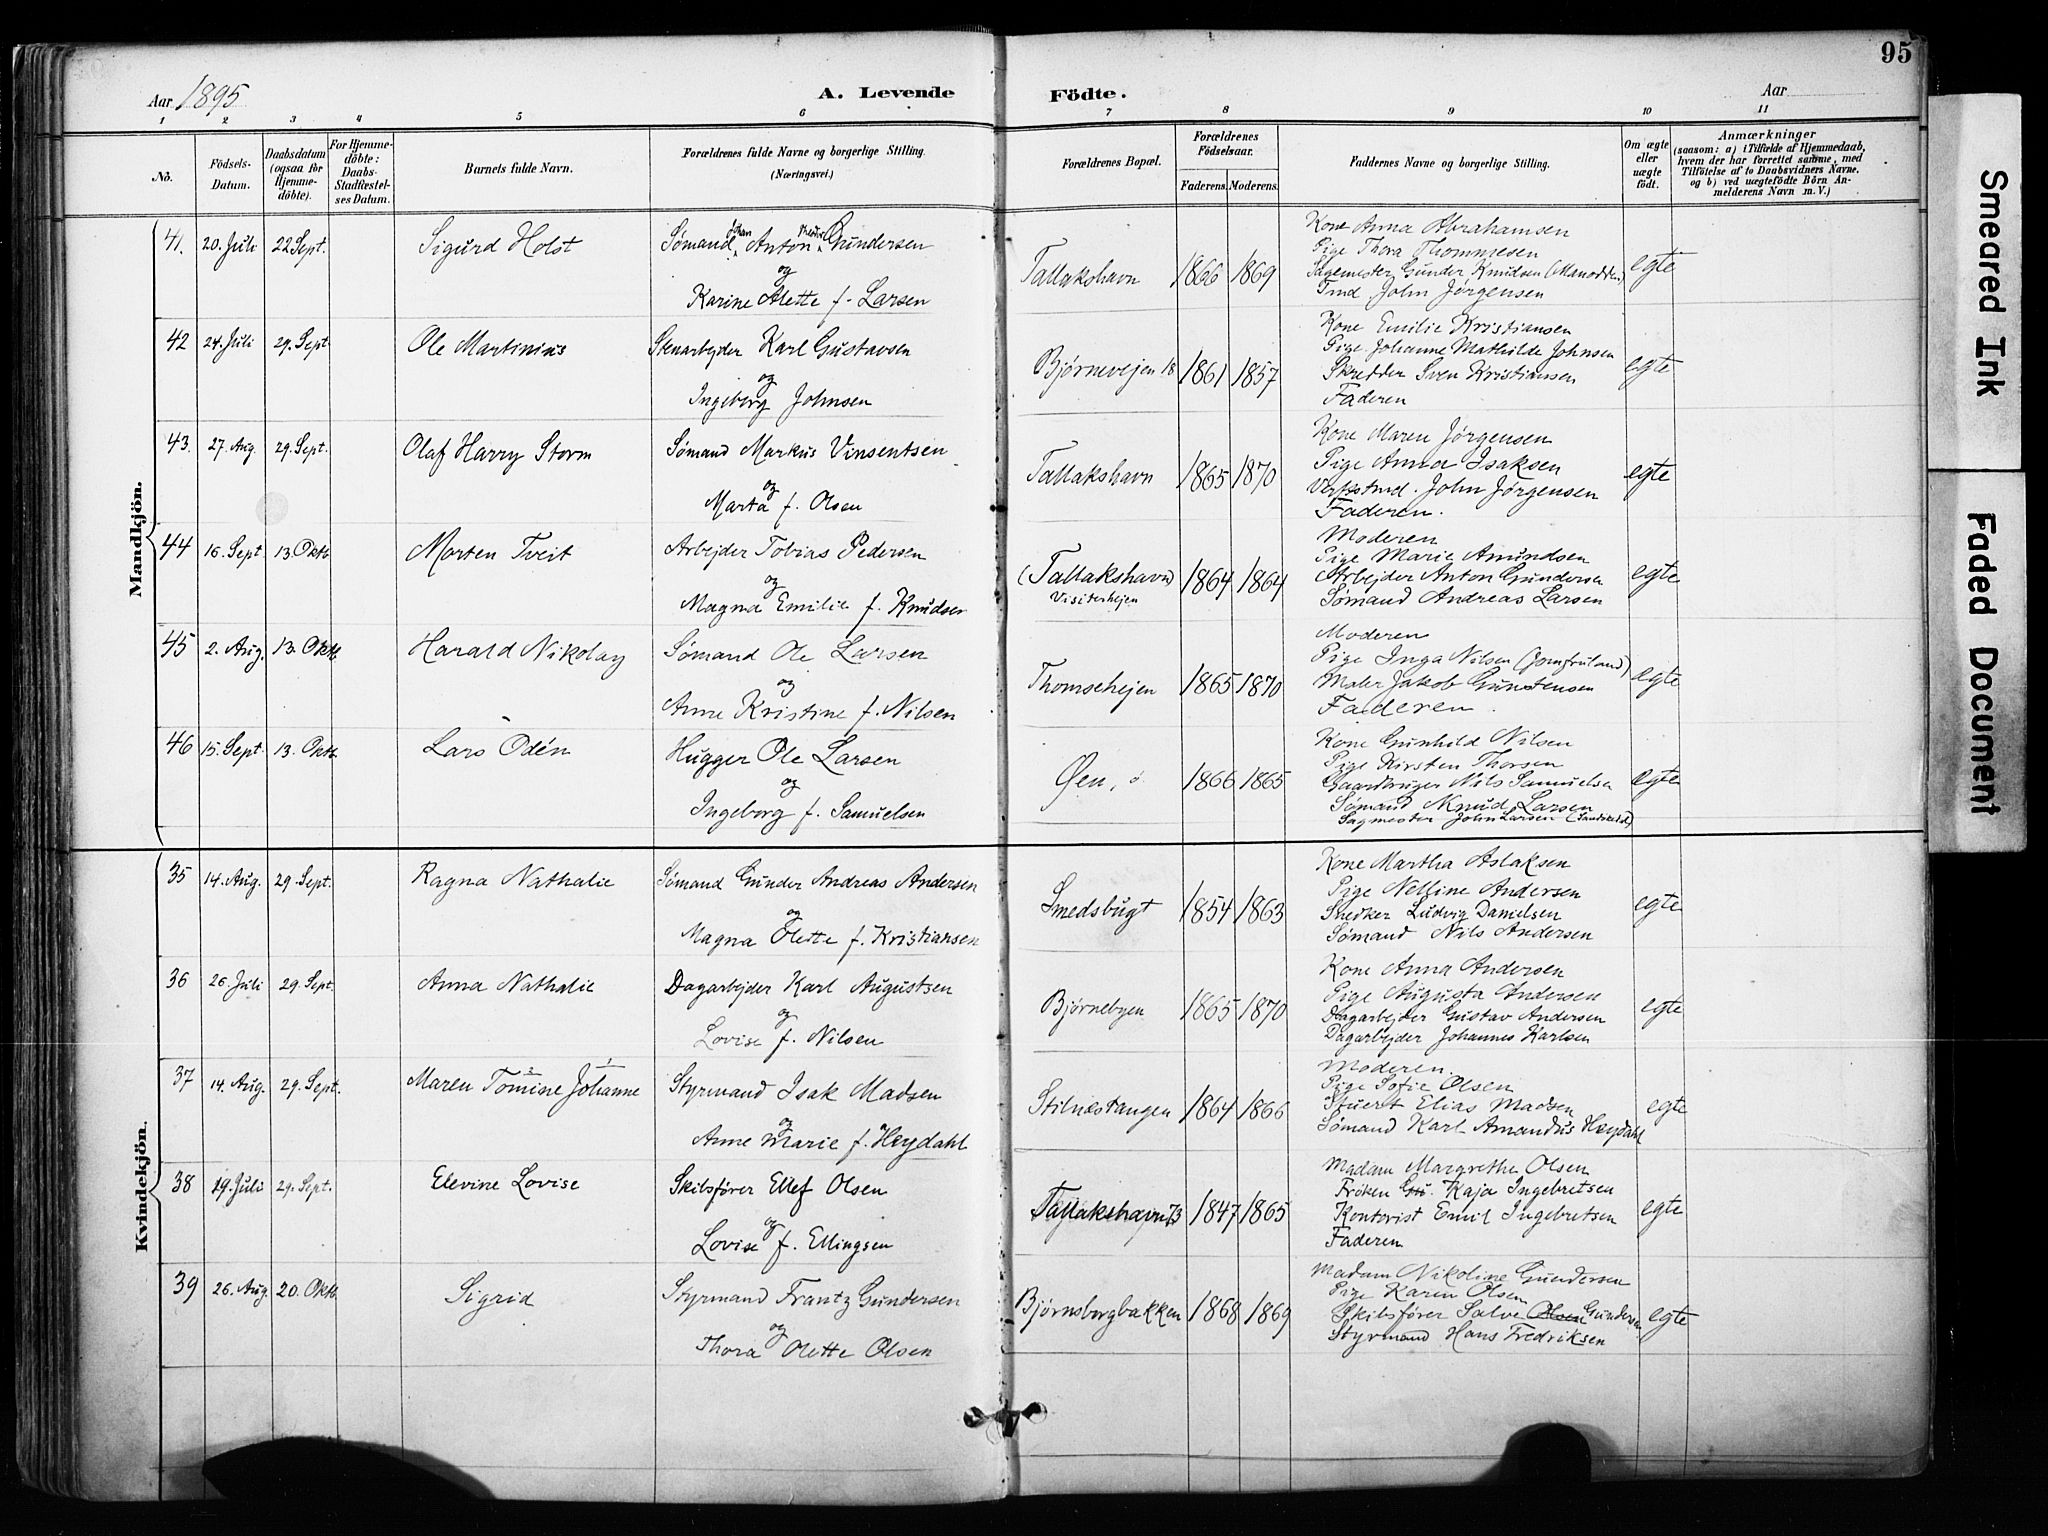 95
Aar 1895
A. Levende Födte.
Aar
1 2 3 4 5 6 7 8 9 10 11
No.
Födsels-Datum.
Daabsdatum (ogsaa for Hjemme-döbte).
For Hjemme-döbte: Daabs-Stadfestel-ses Datum.
Barnets fulde Navn.
Forældrenes fulde Navne og borgerlige Stilling. (Næringsvei.)
Forældrenes Bopæl.
Forældrenes Födselsaar.
Faderens. Moderens.
Faddernes Navne og borgerlige Stilling.
Om ægte eller uægte födt.
Anmærkninger
(saasom: a) i Tilfælde af Hjemmedaab, hvem der har forrettet samme, med Tilföielse af to Daabsvidners Navne. og b) ved uægtefödte Börn An-melderens Navn m. V.)
Mandkjön.
41. 20. Juli 22 Sept. Sigurd Holst
Sømand Johan Anton Gundersen
og
Karine Alette f. Larsen
Tallakshavn 1866 1869
Kone Anna Abrahamsen
Pige Thora Thommesen
Sagemester Gunder Knudsen (Manodden)
Tmd. John Jørgensen
egte
42 24. Juli 29. Sept Ole Martinius
Stenarbejder Karl Gustavsen
og
Ingeborg Johnsen
Bjørnevejen 18 1861 1857
Kone Emilie Kristiansen
Pige Johanne Mathilde Johnsen
Skredder Sven Kristiansen
Faderen
egte
43. 27. Aug. 29. Sept. Olaf Harry Storm
Sømand Markus Vinsentsen
og
Marta f. Olsen
Tallakshavn 1865 1870
Kone Maren Jørgensen
Pige Anna Isaksen
Verkstmd. John Jørgensen
Faderen.
egte
44 16. Sept 13. Oktb. Morten Tveit
Arbejder Tobias Pedersen
og
Magna Emilie f. Knudsen
(Tallakshavn)
Visiterhejen
1864 1864
Moderen
Pige Marie Amundsen
Arbejder Anton Gundersen
Sømand Andreas Larsen
egte
45 2. Aug. 13. Oktb. Harald Nikolay
Sømand Ole Larsen
og
Anne Kristine f. Nilsen
Thomsehejen 1865 1870
Moderen
Pige Inga Nilsen (Jomfruland)
Maler Jakob Gunstensen
Faderen.
egte
46 15. Sept. 13. Oktb. Lars Odén
Hugger Ole Larsen
og
Ingeborg f. Samuelsen
Øen, 1866 1865
Kone Gunhild Nilsen
Pige Kirsten Thorsen
Gaardbruger Nils Samuelsen
Sømand Knud Larsen
Sagmester John Larsen
egte
Kvindekjön.
35 14. Aug. 29. Sept. Ragna Nathalie
Sømand Gunder Andreas Andersen
og
Magna Olette f. Kristiansen
Smedsbugt 1854 1863
Kone Martha Aslaksen
Pige Nelline Andersen
Snedker Ludvig Danielsen
Sømand Nils Andersen
egte
36 26. Juli 29. Sept. Anna Nathalie
Dagarbejder Karl Augustsen
og
Lovise f. Nilsen
Bjørnebyen 1865 1870
Kone Anna Andersen
Pige Augusta Andersen
Dagarbejder Gustav Andersen
Dagarbejder Johannes Karlsen
egte
37 14. Aug. 29. Sept. Maren Tomine Johanne
Styrmand Isak Madsen
og
Anne Marie f. Heydahl
Stilnestangen 1864 1866
Moderen.
Pige Sofie Olsen
Stuert Elias Madsen
Sømand Karl Amandus Heydahl
egte
38 19. Juli 29. Sept. Elevine Lovise
Skibsfører Ellef Olsen
og
Lovise f. Ellingsen
Tallakshavn 73 1847 1865
Madam Margrethe Olsen
Frøken Kaja Ingebretsen
Kontorist Emil Ingebretsen
Faderen
egte
39 26. Aug. 20. Oktb. Sigrid
Styrmand Frantz Gundersen
og
Thora Olette Olsen
Bjørnsborgbakken 1868 1869
Madam Nikoline Gundersen
Pige Karen Olsen
Skibsfører Salve Olsen Gundersen
Styrmand Hans Fredriksen
egte
Smeared Ink
Faded Document